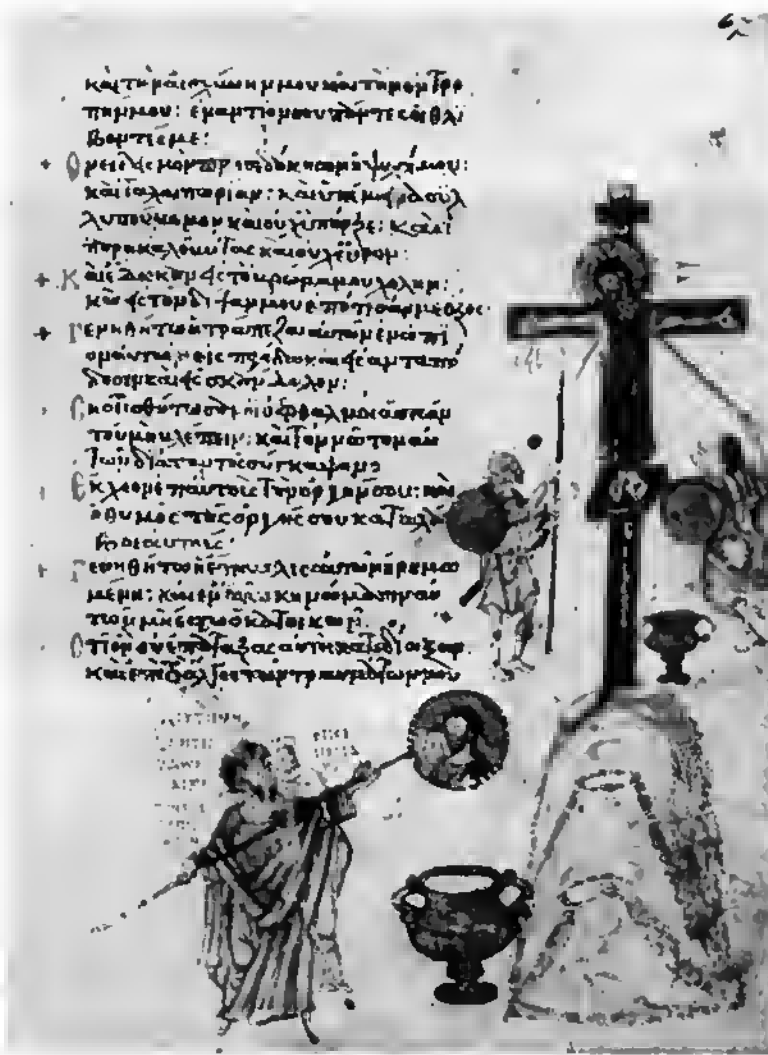 καὶ τὴν αἰσχύνην μου καὶ τὴν ἐντρο
πήν μου: ἐναντίον σου πάντες οἱ θλί
βοντές με:
Ὀνειδισμὸν προσεδόκησεν ἡ ψυχή μου:
καὶ ταλαιπωρίαν: καὶ ὑπέμεινα συλ
λυπούμενον καὶ οὐχ ὑπῆρξε: καὶ
παρακαλοῦντας καὶ οὐχ εὗρον:
Καὶ ἔδωκαν εἰς τὸ βρῶμά μου χολήν:
καὶ εἰς τὴν δίψαν μου ἐπότισάν με ὄξος:
Γενηθήτω ἡ τράπεζα αὐτῶν ἐνώπι
ον αὐτῶν εἰς παγίδα καὶ εἰς ἀνταπό
δοσιν καὶ εἰς σκάνδαλον:
Σκοτισθήτωσαν οἱ ὀφθαλμοὶ αὐτῶν
τοῦ μὴ βλέπειν: καὶ τὸν νῶτον αὐ
τῶν διὰ παντὸς σύγκαμψον
Ἔκχεον ἐπ' αὐτοὺς τὴν ὀργήν σου: καὶ
ὁ θυμὸς τῆς ὀργῆς σου καταλά
βοι αὐτούς:
Γενηθήτω ἡ ἔπαυλις αὐτῶν ἠρημω
μένη: καὶ ἐν τοῖς σκηνώμασιν αὐ
τῶν μὴ ἔστω ὁ κατοικῶν:
Ὅτι ὃν σὺ ἐπάταξας αὐτοὶ κατεδίωξαν
καὶ ἐπὶ τὸ ἄλγος τῶν τραυμάτων μου